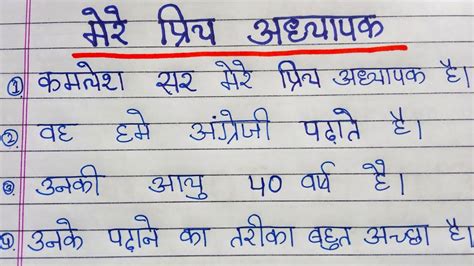 मेरे प्रिय अध्यापक
① कमलेश सर मेरे प्रिय अध्यापक है।
② वह हमे अंग्रेजी पढ़ाते है।
③ उनकी आयु 40 वर्ष है।
④ उनके पढ़ाने का तरीका बहुत अच्छा है।